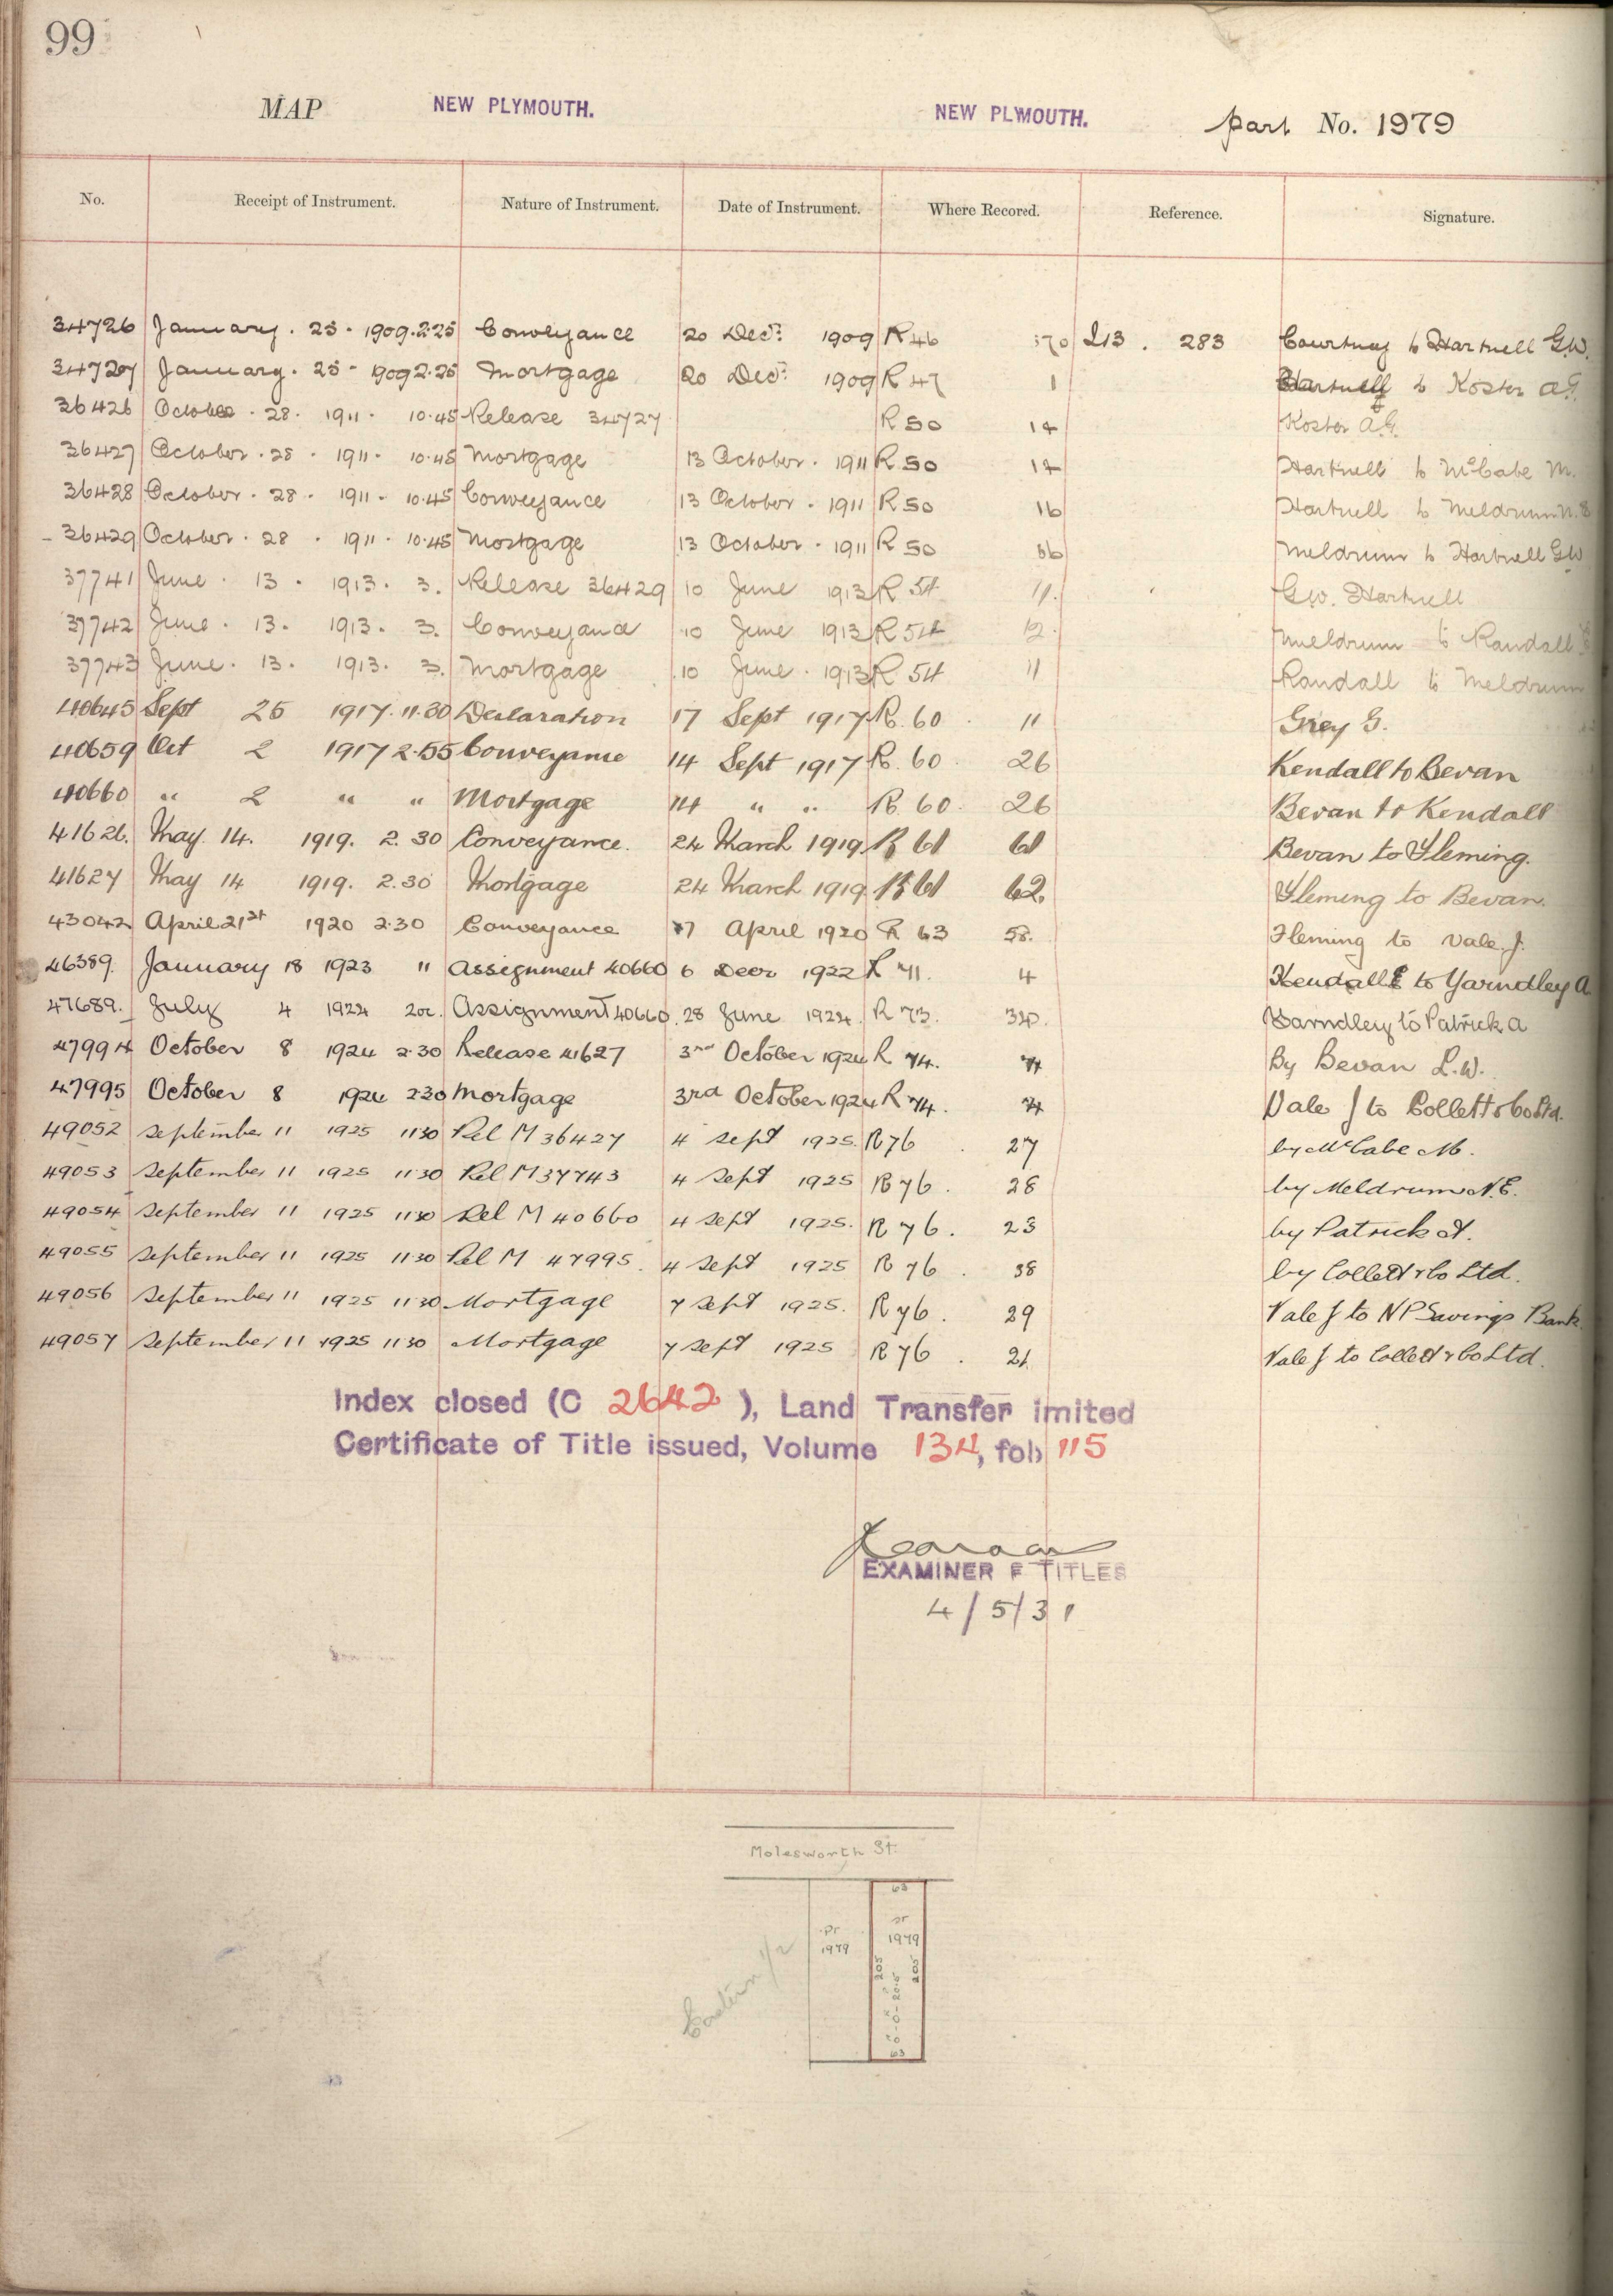 99
MAP NEW PLYMOUTH. NEW PLYMOUTH. part No. 1979
No. Receipt of Instrument. Nature of Instrument. Date of Instrument. Where Recored. Reference. Signature.
34726 January . 25 - 1909. 2.25 Conveyance 20 Decr. 1909 R 46 370 I13 . 283 Courtnay to Hartnell G.W.
34727 January . 25 - 1909 2.25 Mortgage 20 Decr. 1909 R 47 1 Hartnell to Koster A.G.
36426 October . 28. 1911 . 10.45 Release 34727 R 50 14 Koster A.G.
36427 October . 28 . 1911 . 10.45 Mortgage 13 October . 1911 R 50 14 Hartnell to McCabe M.
36428 October . 28 . 1911 . 10.45 Conveyance 13 October . 1911 R 50 16 Hartnell to Meldrum N.E
36429 October . 28 . 1911 . 10.45 Mortgage 13 October . 1911 R 50 Meldrum to Hartnell G.W
37741 June . 13 . 1913 . 3. Release 36429 10 June 1913 R 54 11. G.W. Hartnell
37742 June . 13 . 1913 . 3. Conveyance 10 June 1913 R 54 12. Meldrum to Randall
37743 June . 13 . 1913 . 3. Mortgage 10 June . 1913 R 54 11 Randall to Meldrum
40645 Sept 25 1917. 11.30 Declaration 17 Sept 1917 R. 60 . 11 Grey G.
40659 Oct 2 1917 2.55 Conveyance 14 Sept 1917 R. 60 . 26 Kendall to Bevan
40660 " 2 " " Mortgage 14 " " R. 60 . 26 Bevan to Kendall
41626. May 14. 1919. 2.30 Conveyance. 24 March 1919 R 61 61 Bevan to Fleming.
41627 May 14 1919. 2.30 Mortgage 24 March 1919 R 61 62. Fleming to Bevan.
43042 April 21st 1920 2.30 Conveyance 7 April 1920 R 63 58. Fleming to Vale. J.
46389. January 18 1923 " Assignment 40660 6 Decr 1922 R 71. 4 Kendall to Yarndley A.
47689. July 4 1924 Assignment 40660. 28 June 1924. R 73. Yarndley to Patrick A
47994 October 8 1924 2.30 Release 41627 3rd October 1924 R 74. 74 By Bevan L.W.
47995 October 8 1924 2.30 Mortgage 3rd October 1924 R 74. 74 Vale J to Collett & Co Ltd.
49052 September 11 1925 11.30 Rel M 36427 4 Sept 1925. R 76 . 27 by McCabe M.
49053 September 11 1925 11.30 Rel M 37743 4 Sept 1925 R 76 . 28 by Meldrum N.E.
49054 September 11 1925 11.30 Rel M 40660 4 Sept 1925. R 76 . 23 by Patrick A.
49055 September 11 1925 11.30 Rel M 47995. 4 Sept 1925 R 76 . 38 by Collett & Co Ltd.
49056 September 11 1925 11.30 Mortgage 7 Sept 1925. R 76 . 29 Vale J to NP Savings Bank.
49057 September 11 1925 11.30 Mortgage 7 Sept 1925 R 76 . 21 Vale J to Collett & Co Ltd.
Index closed (C 2642 ), Land Transfer imited
Certificate of Title issued, Volume 134, fol 115
EXAMINER F TITLES
4/5/31
Molesworth St.
63
pt 1979
pt 1979
205
205
0-0-20.5
63
Eastern 1/2